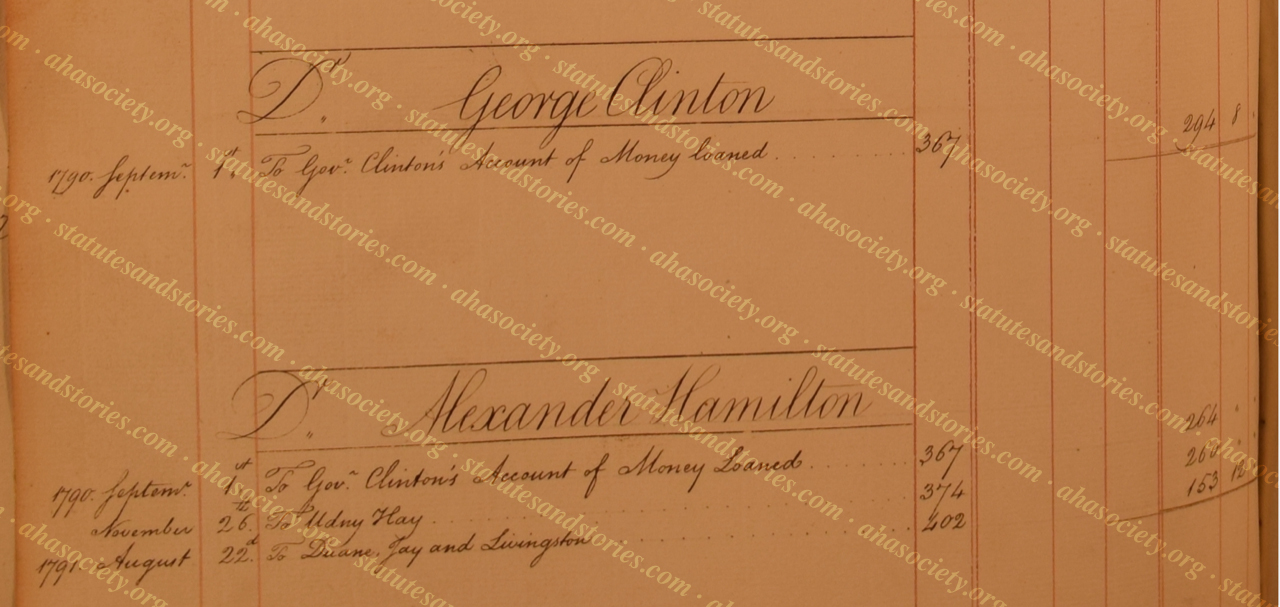 Dr. George Clinton
1790. Septemr. 1st. To Govr. Clinton's Account of Money loaned 367 294 8
Dr. Alexander Hamilton
1790. Septemr. 1st To Govr. Clinton's Account of Money Loaned 367 264
November 26th. To Udny Hay 374 260
1791. August 22d. To Duane, Jay and Livingston 402 153 12
statutesandstories.com · ahasociety.org